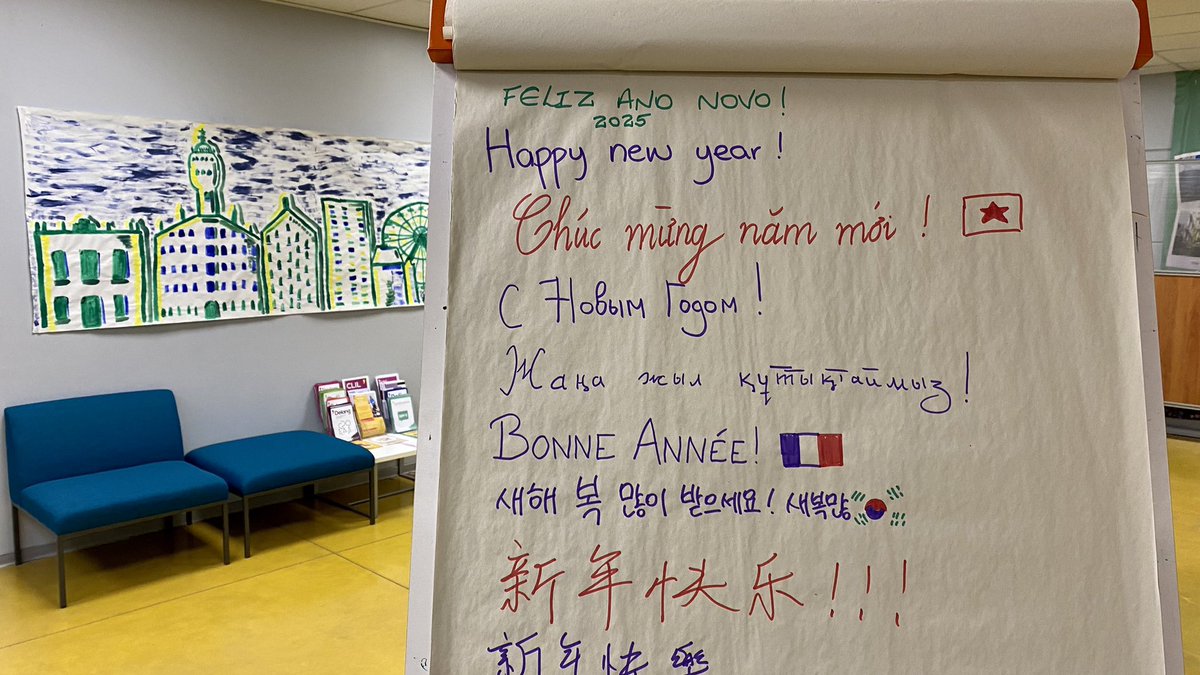 FELIZ ANO NOVO!
2025
Happy new year!
Chúc mừng năm mới!
С Новым Годом!
Жаңа жыл құттықтаймыз!
BONNE ANNÉE!
새해 복 많이 받으세요! 새복많
新年快乐!!!
新年快樂
CLIL